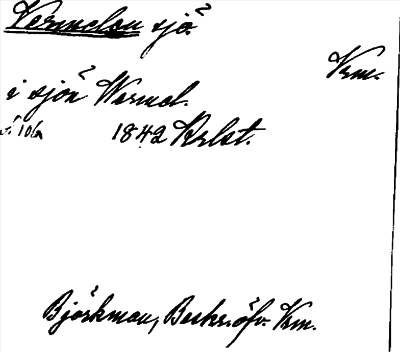 Vermelen sjö
Vrm.
i sjön Wermel.
s. 106 1842 Krlst.
Björkman, Beskr. öfv. Vrm.